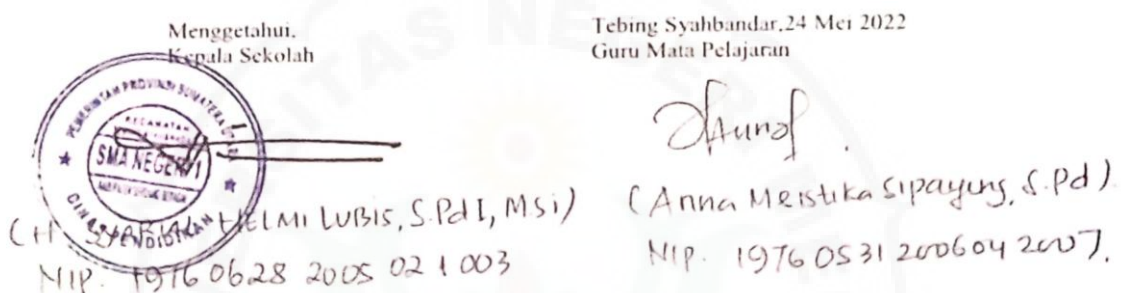 Menggetahui,
Kepala Sekolah
PEMERINTAH PROVINSI SUMATERA
KECAMATAN
SMA NEGERI 1
DINAS PENDIDIKAN
HELMI LUBIS, S.PdI, MSi)
NIP. 19760628 2005 02 1 003
Tebing Syahbandar,24 Mei 2022
Guru Mata Pelajaran
(Anna Meistika Sipayung, S.Pd)
NIP. 19760531 200604 2007.